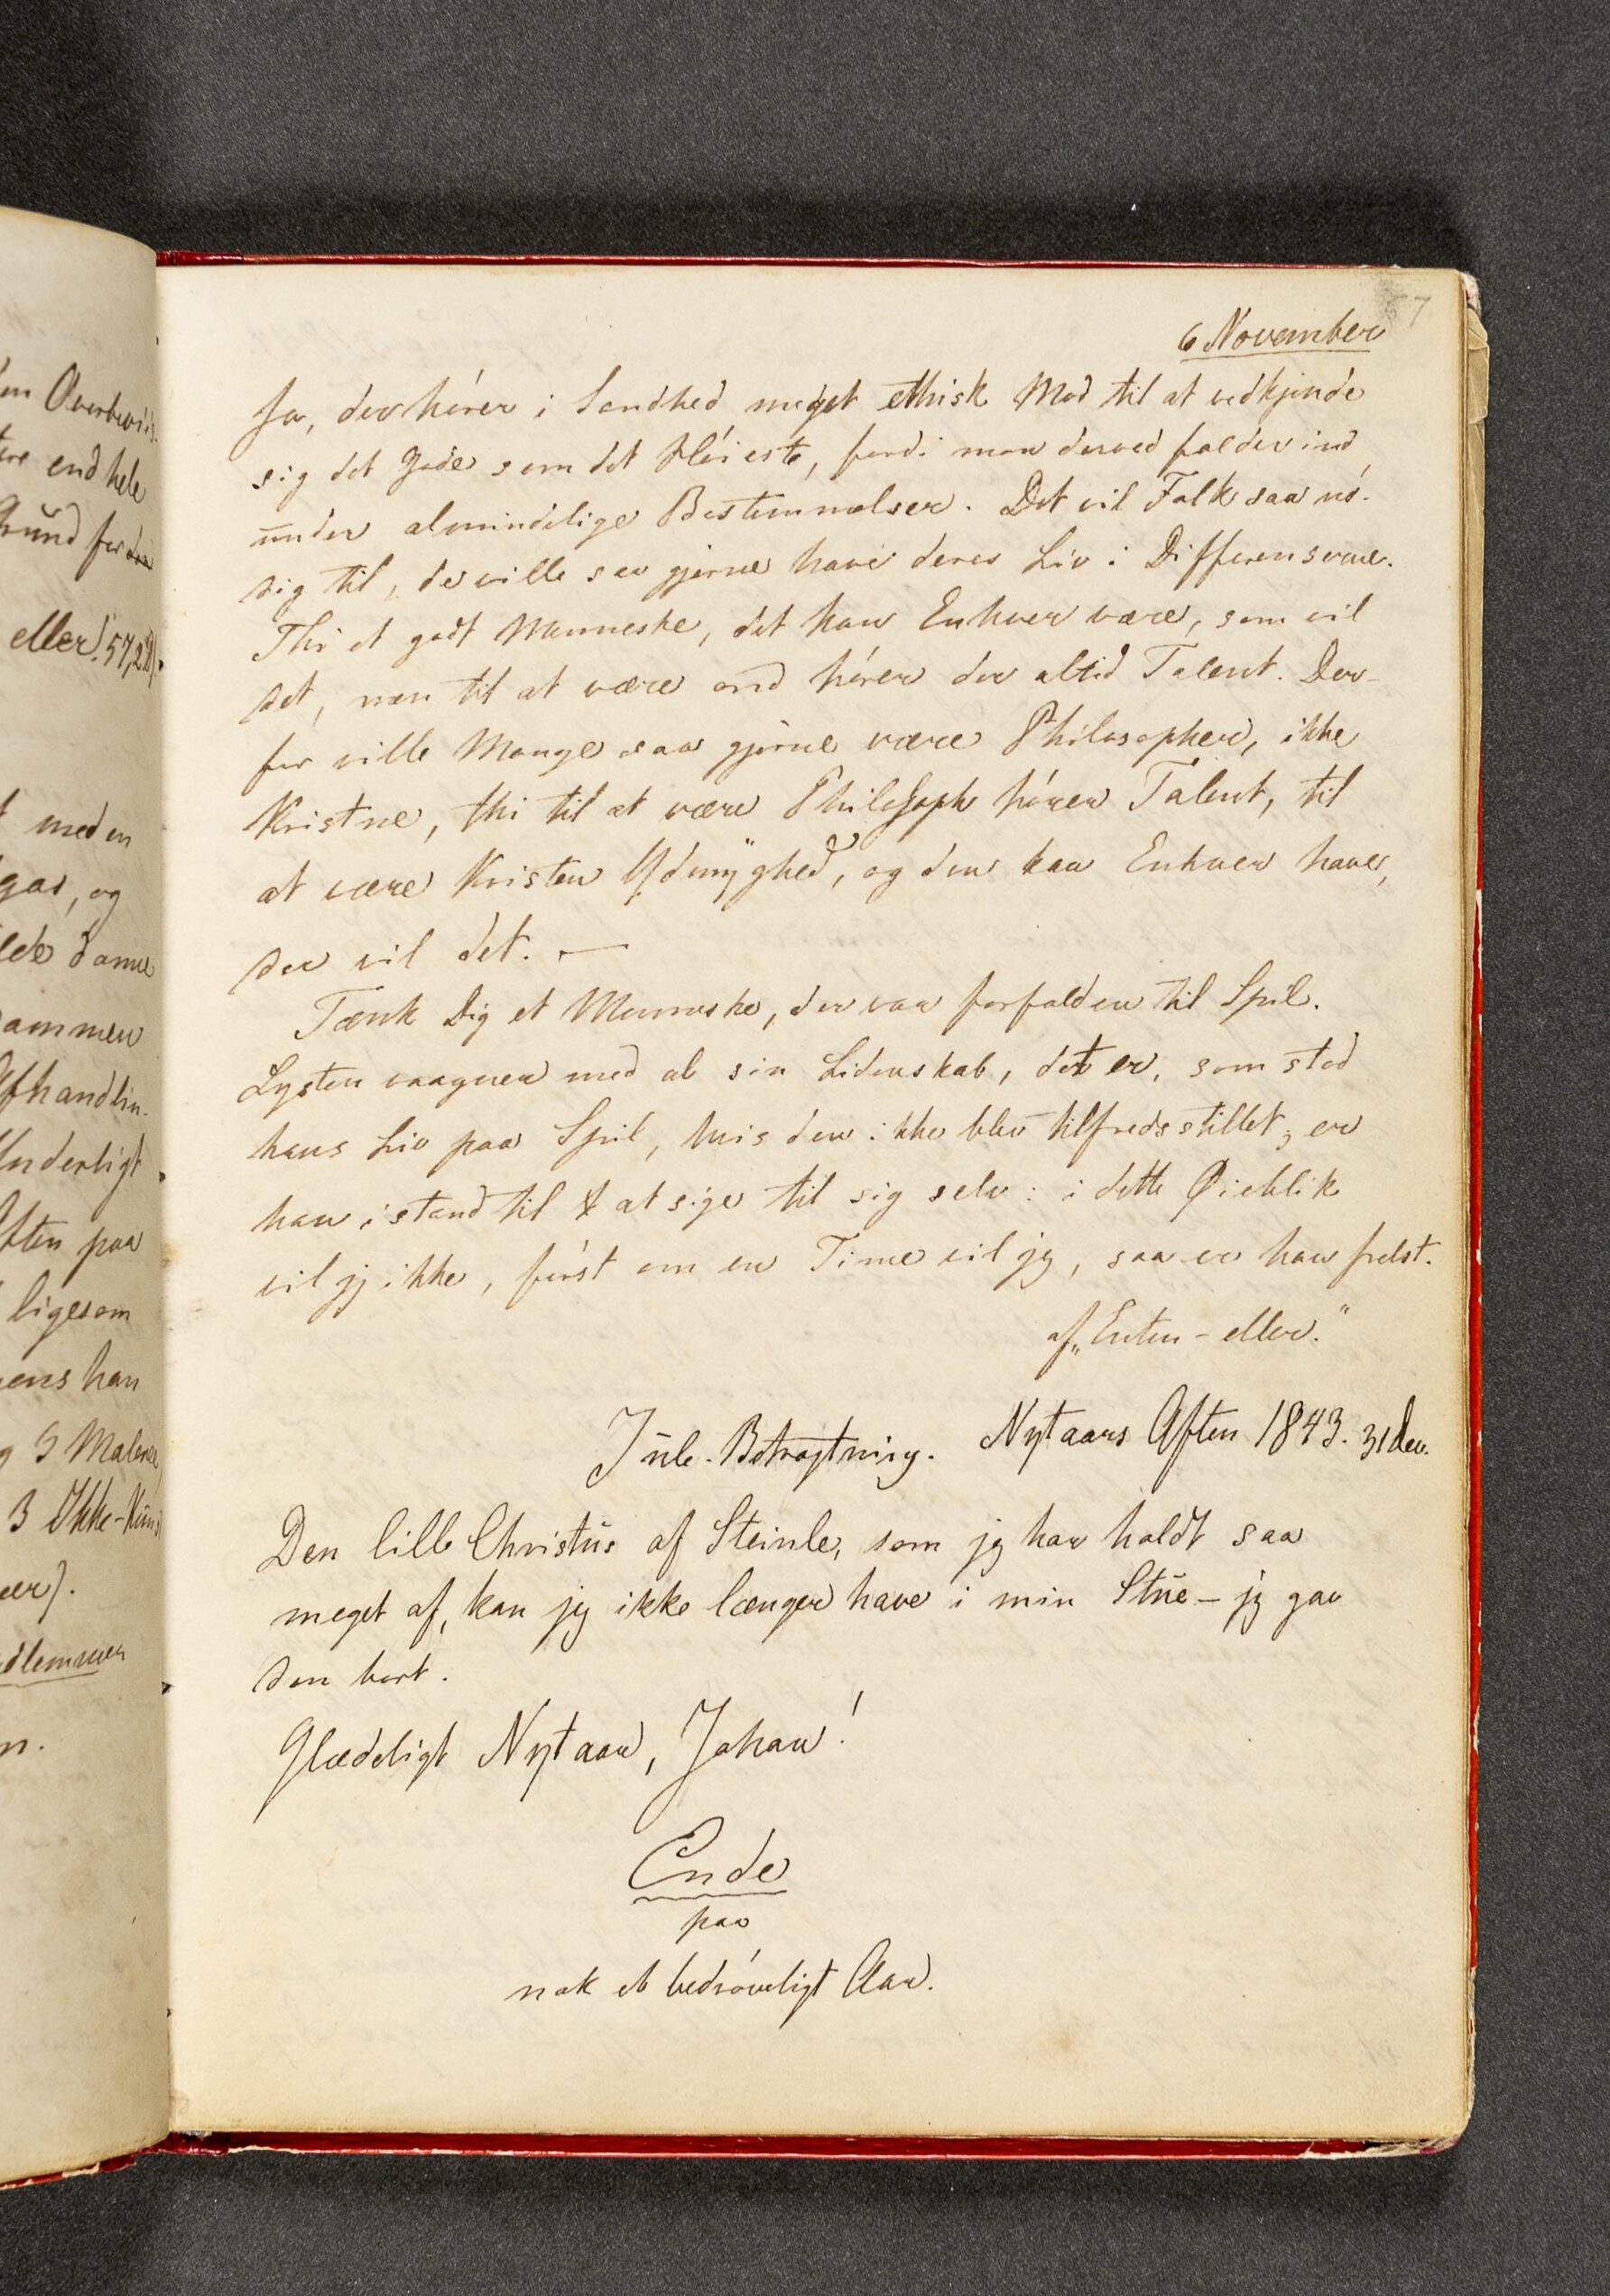 67
6 November
Ja, der hører i Sandhed meget ethisk Mod til at vedkjende
sig det Gode som det Høieste, fordi man derved falder ind
under almindelige Bestemmelser. Det vil Folk saa nø-
dig til, de ville saa gjerne have deres Liv i Differenserne.
Thi et godt Menneske, det kan Enhver være, som vil
det, men til at være ond hører der altid Talent. Der-
for ville Mange saa gjerne være Philosopher, ikke
Kristne, thi til at være Philosoph hører Talent, til
at være Kristen Ydmyghed, og den kan Enhver have,
der vil det. —
Tænk Dig et Menneske, der var forfalden til Spil.
Lysten vaagner med al sin Lidenskab, det er, som stod
hans Liv paa Spil, hvis den ikke blev tilfredsstillet; er
han istand til at sige til sig selv: i dette Øieblik
vil jeg ikke, først om en Time vil jeg, saa er han frelst.
af „Enten-eller."
Jule-Betragtning. Nytaars Aften 1843. 31 Dec.
Den lille Christus af Steinle, som jeg har holdt saa
meget af, kan jeg ikke længer have i min Stue – jeg gav
den bort.
Glædeligt Nytaar, Johan!
Ende
paa
nok et bedrøveligt Aar.
end hele
Grund for den
eller 57,2
med en
og
ammen
Afhandlin-
Underligt
Aften paa
ligesom
ens han
og 9 Malere
3 Ikke-Kuns
er).
edlemmer
n.